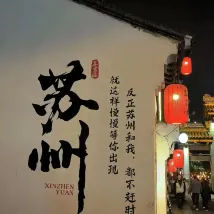 苏州
XINZHEN
YUAN
反正苏州和我，都不赶时
就这样慢慢等你出现